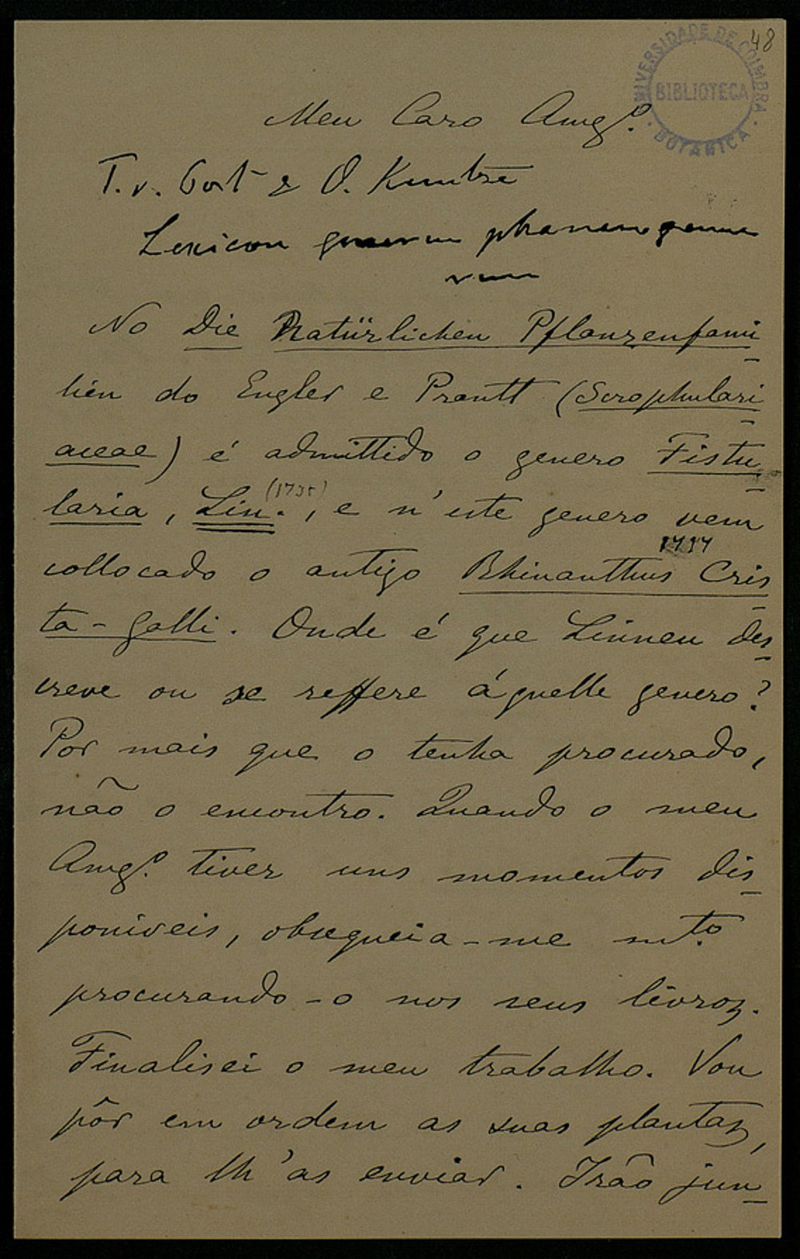 48
UNIVERSIDADE DE COIMBRA
BIBLIOTECA
BOTANICA
Meu Caro Amgº.
T. v. Post & O. Kuntze
Lexicon generum phanerogama
rum
No Die Natürlichen Pflanzenfami
lien do Engler e Prantl (Scrophulari
aceae) é admittido o genero Fistu
laria, Lin. (1735), e n'este genero vem
collocado o antigo Rhinanthus Cris
ta-Galli. Onde é que Linneu des
creve ou se reffere áquelle genero?
Por mais que o tenha procurado,
não o encontro. Quando o meu
Amgº. tiver uns momentos dis
poniveis, obsequeia-me mtº.
procurando-o nos seus livros.
Finalisei o meu trabalho. Vou
pôr em ordem as suas plantas,
para lh'as enviar. Irão jun